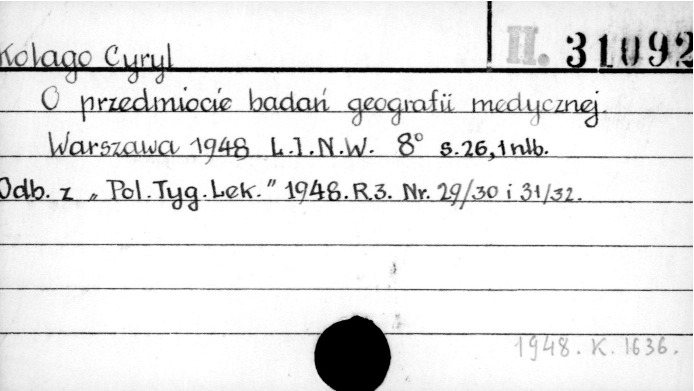 Kolago Cyryl
II. 31092
O przedmiocie badań geografii medycznej.
Warszawa 1948 L.I.N.W. 8° s.26, 1 nlb.
Odb. z „Pol. Tyg. Lek.” 1948. R.3. Nr. 29/30 i 31/32.
1948. K. 1636.